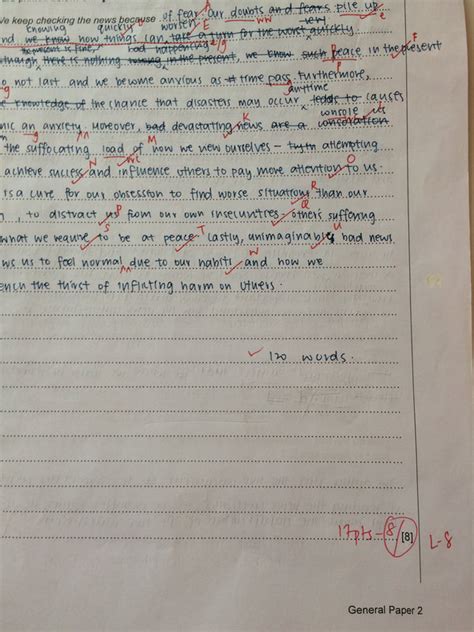 We keep checking the news because of fear. Our doubts and fears pile up
knowing quickly worsen. E ww very
and we know how things can take a turn for the worst quickly.
the present is fine, bad happening
though, there is nothing in the present, we know such peace in the present
do not last and we become anxious as time pass. Furthermore,
anytime
knowledge of the chance that disasters may occur leads to causes
console its
an anxiety. Moreover, bad devastating news are a consolation
the suffocating load of how we view ourselves – attempting
achieve success and influence others to pay more attention to us.
is a cure for our obsession to find worse situations than our
, to distract us from our own insecurities – others suffering
what we require to be at peace. Lastly, unimaginable bad news
us to feel normal due to our habits and how we
the thirst of inflating harm on others.
120 words.
17pts – 8/[8] L-8
General Paper 2